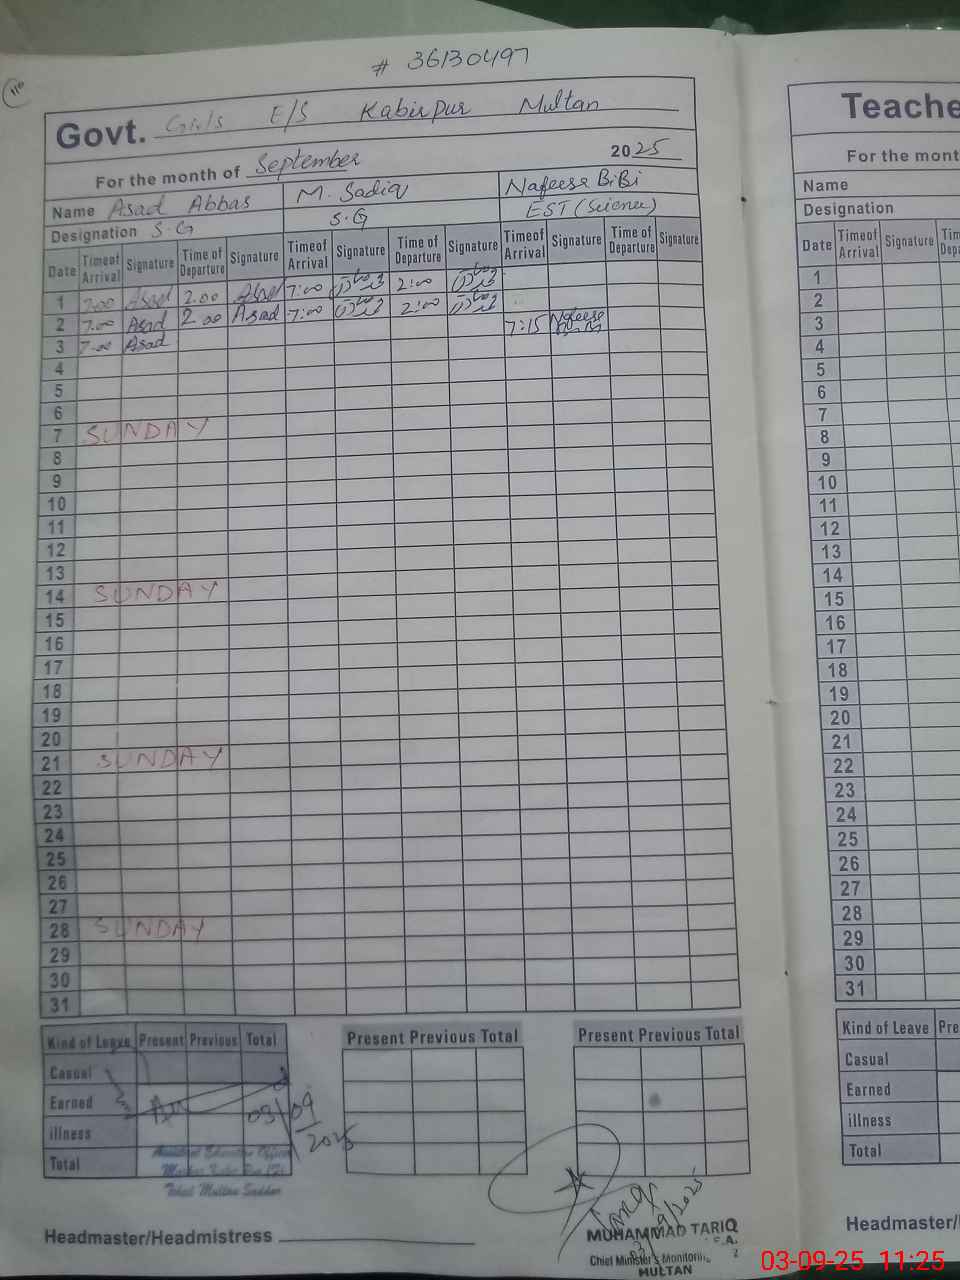 # 36130497
110
Govt. Girls E/S Kabirpur Multan
For the month of September 2025
Name Asad Abbas M. Sadiq Nafeesa BiBi
Designation S.G S.G EST (Science)
Date Timeof Arrival Signature Time of Departure Signature Timeof Arrival Signature Time of Departure Signature Timeof Arrival Signature Time of Departure Signature
1 7.00 Asad 2.00 Asad 7:00 2:00
2 7.00 Asad 2.00 Asad 7:00 2:00
3 7.00 Asad 7:15 Nafeesa BiBi
4
5
6
7 SUNDAY
8
9
10
11
12
13
14 SUNDAY
15
16
17
18
19
20
21 SUNDAY
22
23
24
25
26
27
28 SUNDAY
29
30
31
Kind of Leave Present Previous Total Present Previous Total Present Previous Total
Casual
Earned
illness
Total
03/09/2025
Assistant Education Officer
Tehsil Multan Saddar
Tariq
03/9/2025
MUHAMMAD TARIQ
Chief Minister's Monitoring
MULTAN
Headmaster/Headmistress
Teache
For the mont
Name
Designation
Date Timeof Arrival Signature Tim Depa
1
2
3
4
5
6
7
8
9
10
11
12
13
14
15
16
17
18
19
20
21
22
23
24
25
26
27
28
29
30
31
Kind of Leave Pre
Casual
Earned
illness
Total
Headmaster/
03-09-25 11:25